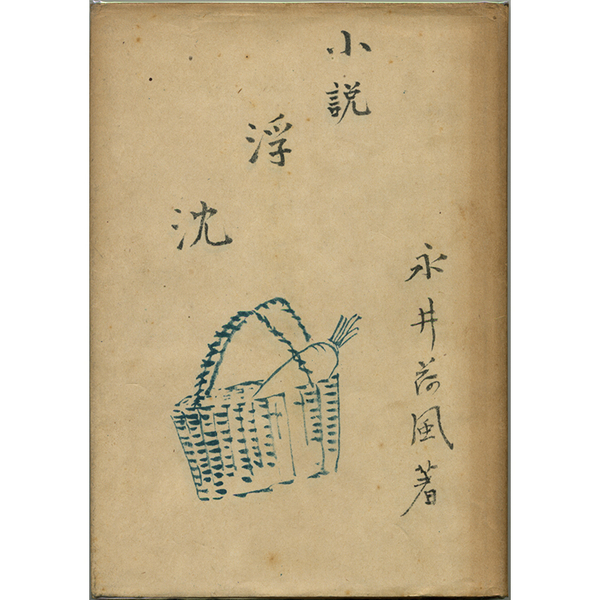 小説
浮
沈
永井荷風著